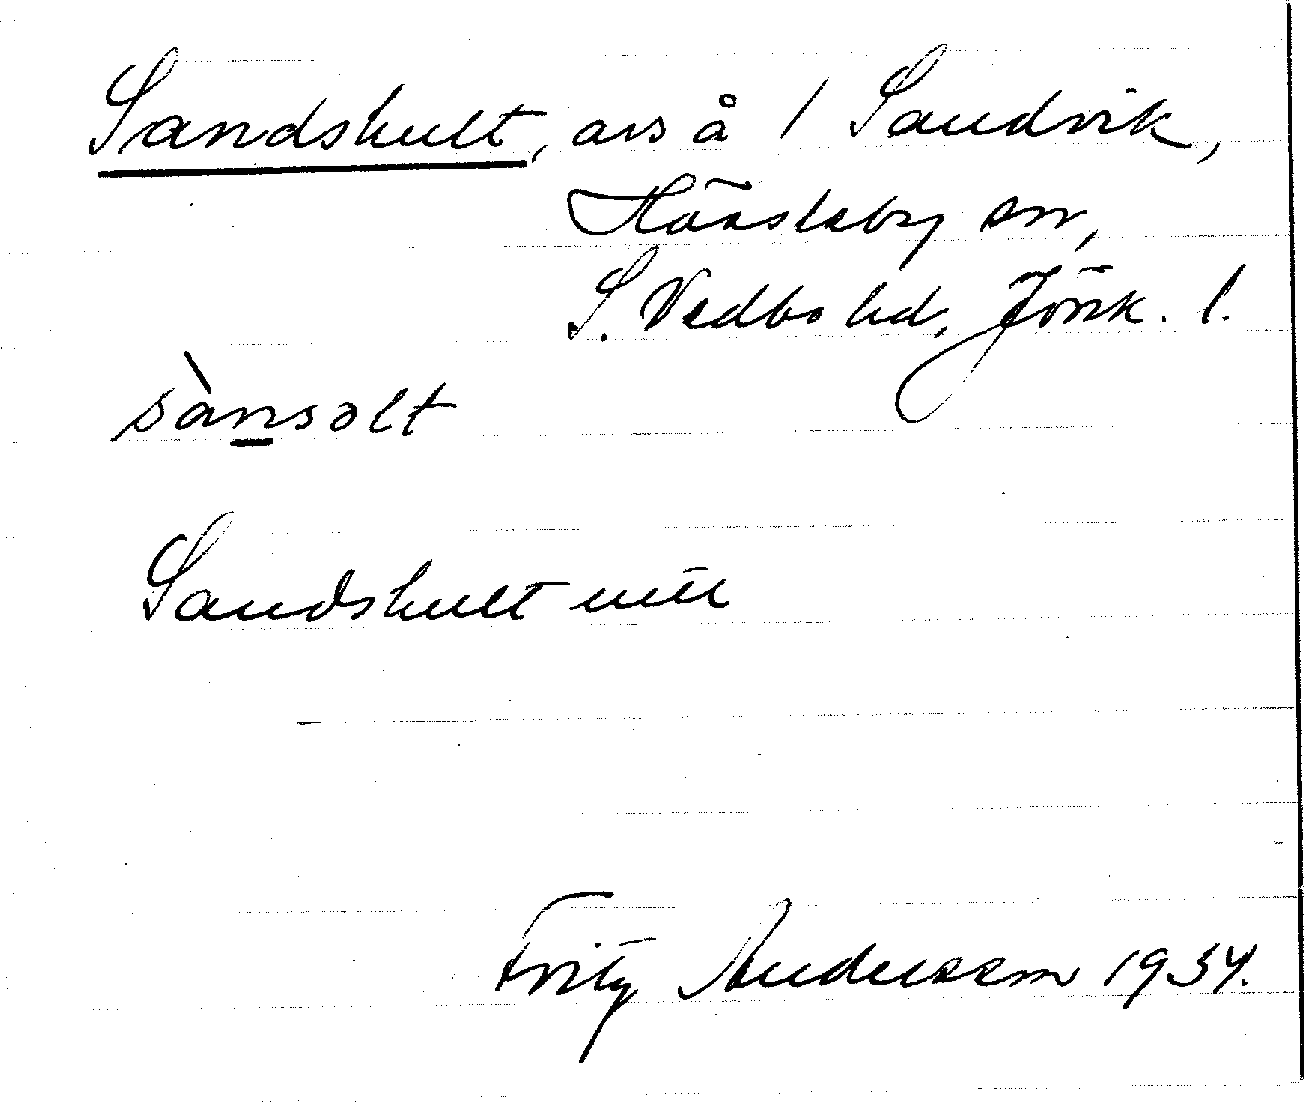 Sandshult, avs å 1 Sandvik,
Hässleby sn,
S. Vedbo hd, Jönk. l.
sànsolt
Sandshult
Fritz Andersson 1934.